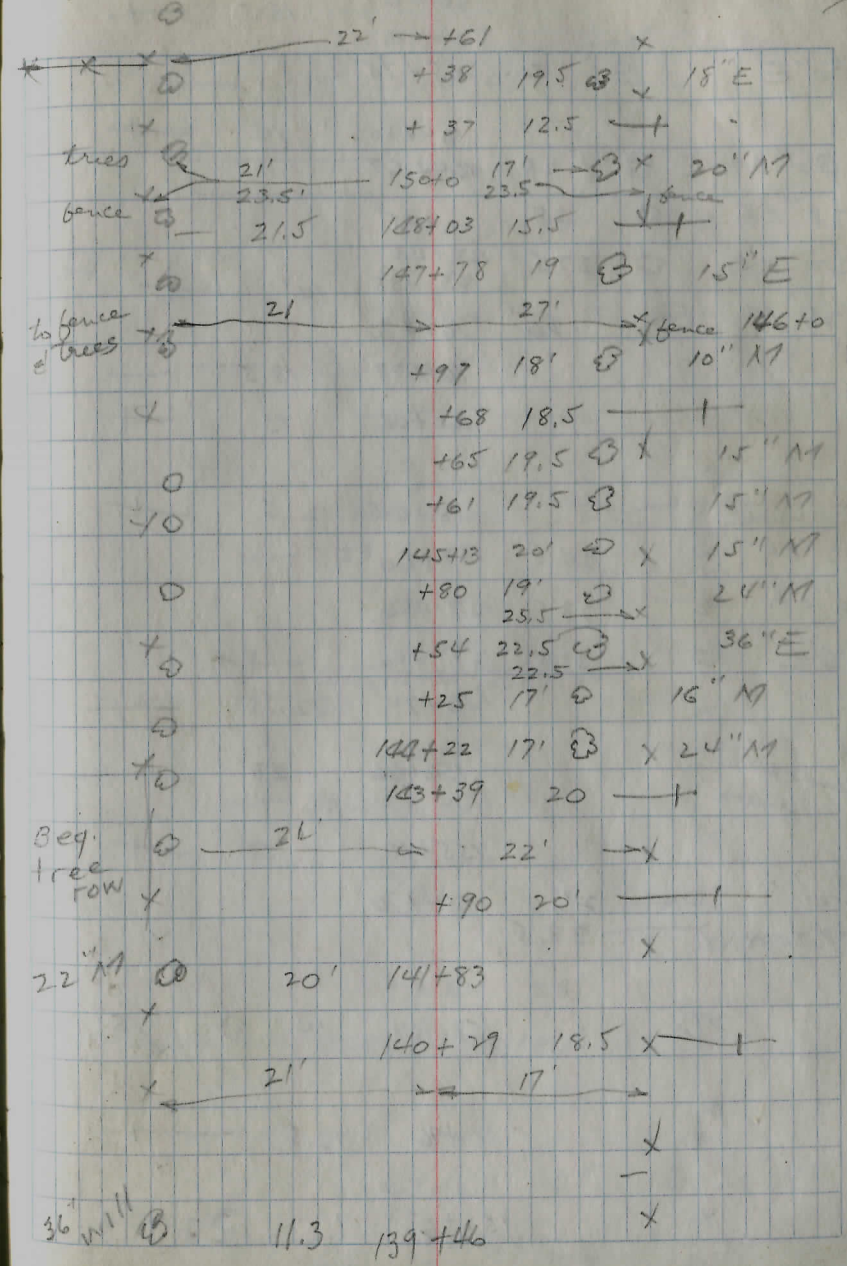 22' +61
+38 19.5 18" E
+37 12.5
trees 21' 150+0 17' 20" M
fence 23.5' 23.5 fence
21.5 148+03 15.5
147+78 19 15" E
to fence 21 27' fence 146+0
& trees
+97 18' 10" M
+68 18.5
+65 19.5 15" M
+61 19.5 15" M
145+13 20' 15" M
+80 19' 24" M
25.5
+54 22.5 36" E
22.5
+25 17' 16" M
144+22 17' 24" M
143+39 20
Beg. 21' 22'
tree
row
+90 20'
22" M 20' 141+83
140+29 18.5
21' 17'
36" will 11.3 139+46